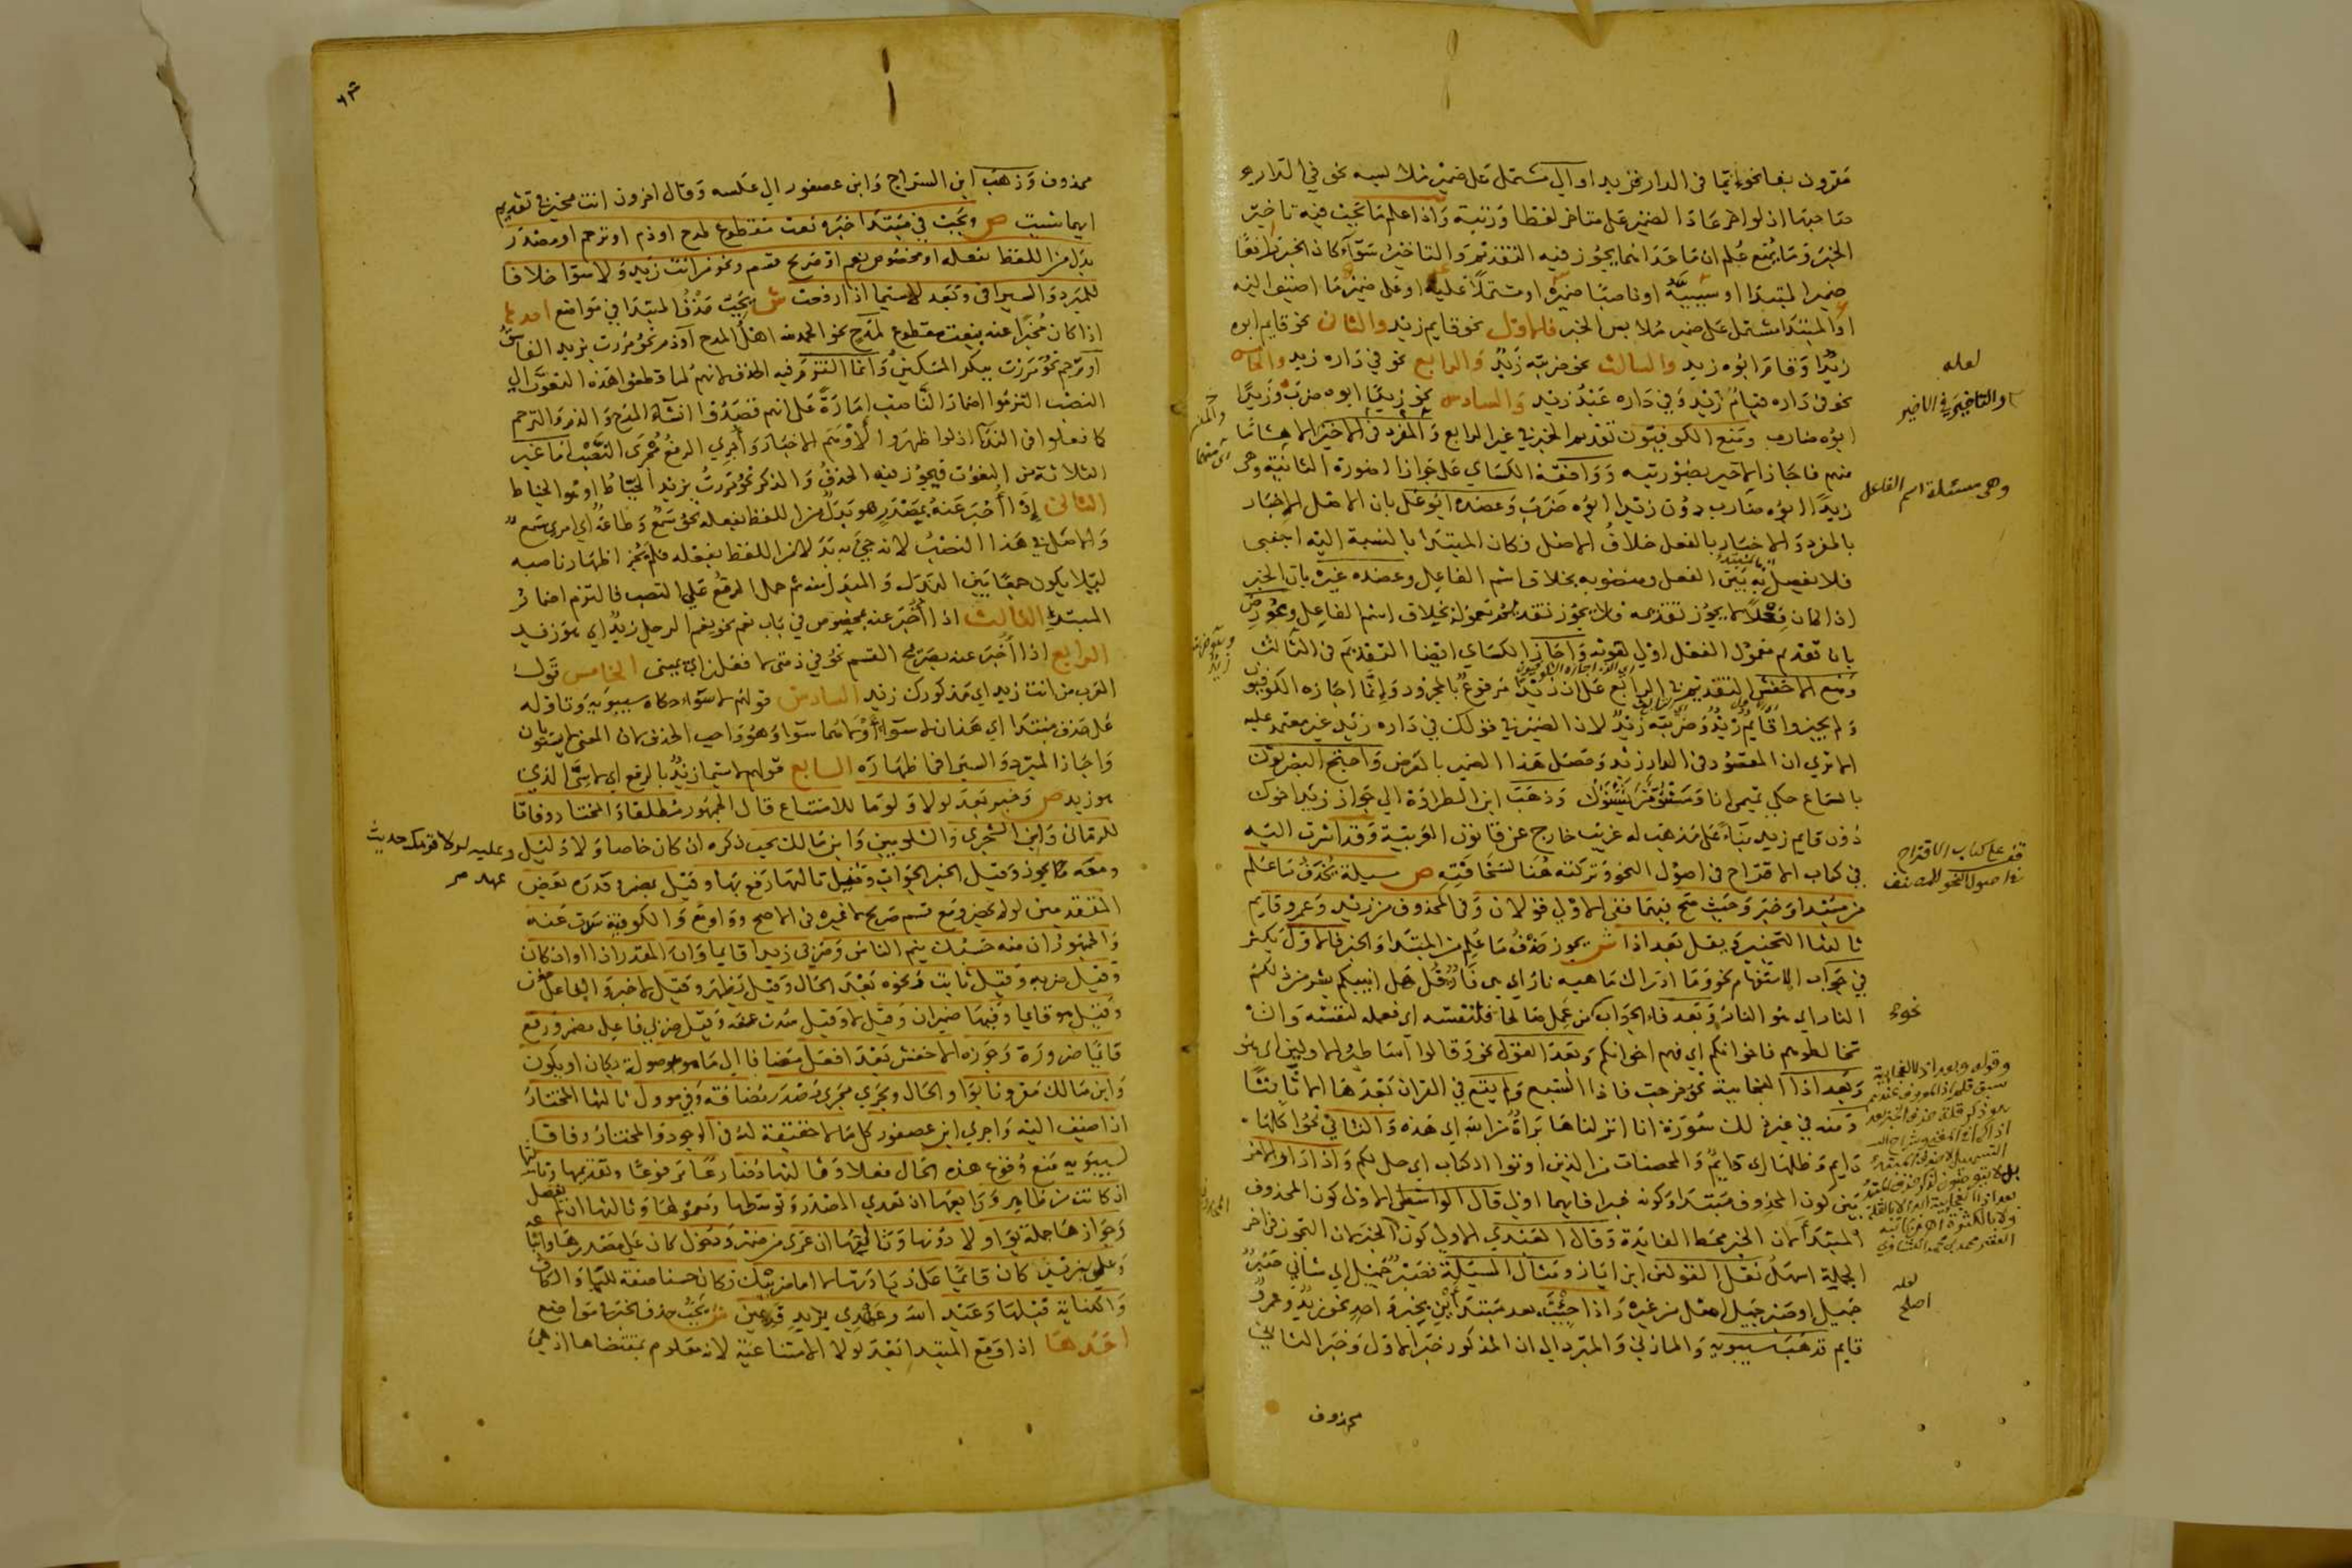 مقرون بفا نحو اما في الدار فزيد او الى مشتمل على ضمير ملابسه نحو في الدار
صاحبها اذ لو اخر عاد الضمير على متاخر لفظا ورتبة واذا علم ما يجب فيه تاخير
الخبر وما يمنع علم ان ما عداهما يجوز فيه التقديم والتاخير سواء كان الخبر رافعا
ضمير المبتدا او سببيه او ناصبا ضميره او مشتملا عليه او على ضمير ما اضيف اليه
او المبتدا مشتمل على ضمير ملابس الخبر فالاول نحو قايم زيد والثاني نحو قايم ابوه
زيد او قام ابوه زيد والثالث نحو ضربته زيد والرابع نحو في داره زيد والخامس
نحو في داره قيام زيد وفي داره عبد زيد والسادس نحو زيدا ابوه ضرب وزيدا
ابوه ضارب ومنع الكوفيون تقديم الخبر في غير الرابع والمفرد في الاخير الا هشاما
منهم فاجاز الاخير بصورتيه ووافقه الكسائي على جواز الصورة الثانية وهي
زيدا ابوه ضارب دون زيدا ابوه ضرب وعضده ابو علي بان الاصل الاخبار
بالمفرد والاخبار بالفعل خلاف الاصل فكان المبتدا بالنسبة اليه اجنبي
فلا يفصل به بين الفعل ومنصوبه بخلاف اسم الفاعل وعضده غيره بان الخبر
اذا كان فعلا لا يجوز تقديمه فلا يجوز تقديم معموله بخلاف اسم الفاعل وعورض
بان تقديم معمول الفعل اولى لقوته واجاز الكسائي ايضا التقديم في الثالث
ومنع الاخفش التقديم في الرابع على ان زيد مرفوع بالمجرور وانما اجازه الكوفيون
ولم يجيزوا قايم زيد وضربته زيد لان الضمير في قولك في داره زيد غير معتمد عليه
الا ترى ان المقصود في الدار زيد وحصل هذا الضمير بالعرض واحتج البصريون
بالسماع حكي تميمي انا ومشنوء من يشنوك وذهب ابن الطراوة الى جواز زيد اخوك
دون قايم زيد بناء على مذهب له غريب خارج عن قانون العربية وقد اشرت اليه
في كتاب الاقتراح في اصول النحو وتركته هنا لسخافته ص مسيلة يحذف ما علم
من مبتدا وخبر وحيث صح فيهما ففي الاولى قولان وفي المحذوف من زيد وعمرو قايم
ثالثها التخيير ويقل بعد اذا ش يجوز حذف ما علم من المبتدا والخبر فالاول يكثر
في جواب الاستفهام نحو وما ادراك ما هيه نار اي هي نار قل هل انبيكم بشر من ذلكم
النار اي هو النار وبعد فاء الجواب من عمل صالحا فلنفسه اي فعمله لنفسه وان
تخالطوهم فاخوانكم اي فهم اخوانكم وبعد القول نحو وقالوا اساطير الاولين اي هو
وبعد اذا الفجايية نحو خرجت فاذا السبع ولم يقع في القران بعدها الا ثابتا
ومنه في غير ذلك سورة انا انزلناها براة من الله اي هذه والثاني نحو اكلها
دايم وظلها اي دايم والمحصنات من الذين اوتوا الكتاب اي حل لكم واذا دار الامر
بين كون المحذوف مبتدا وكونه خبرا فايهما اولى قال الواسطي الاولى كون المحذوف
المبتدا لان الخبر محط الفايدة وقال العبدي الاولى كون الخبر لان التجوز في اخر
الجملة اسهل نقل القولين ابن اياز ومثال المسيلة فصبر جميل اي شاني صبر
جميل او صبر جميل امثل من غيره واذا جيت بعد مبتداين بخبر واحد نحو زيد وعمرو
قايم ذهب سيبويه والمازني والمبرد الى ان المذكور خبر الاول وخبر الثاني
محذوف
لعله
او التاخير في الاخير
وهي مسئلة اسم الفاعل
قف على كتاب الاقتراح
في اصول النحو للمصنف
نحوء
لعله
اصلح
محذوف وذهب ابن السراج وابن عصفور الى عكسه وقال اخرون انت مخير في تقديم
ايهما شيت ص ويجب في مبتدا خبره نعت مقطوع لمدح او ذم او ترحم او مصدر
بدل من اللفظ بفعله او مخصوص نعم او صريح قسم ونحو من انت زيد ولا سوا خلافا
للمبرد والسيرافي وبعد لاسيما اذا رفعت ش يجب حذف المبتدا في مواضع احدها
اذا كان مخبرا عنه بنعت مقطوع لمدح نحو الحمد لله اهل المدح او ذم نحو مررت بزيد الفاسق
او ترحم نحو مررت ببكر المسكين وانما التزم فيه الحذف لانهم لما قطعوا هذه النعوت الى
النصب التزموا اضمار الناصب امارة على انهم قصدوا انشاء المدح والذم والترحم
كما فعلوا في الندا اذ لو اظهروا لاوهم الاخبار واجري الرفع مجرى النصب اما غير
الثلاثة من النعوت فيجوز فيه الحذف والذكر نحو مررت بزيد الخياط او هو الخياط
الثاني اذا اخبر عنه بمصدر هو بدل من اللفظ بفعله نحو سمع وطاعة اي امري سمع
والاصل في هذا النصب لانه جي به بدلا من اللفظ بفعله فلم يجز اظهار ناصبه
ليلا يكون جمعا بين البدل والمبدل منه ثم حمل الرفع على النصب فالتزم اضمار
المبتدا الثالث اذا اخبر عنه بمخصوص في باب نعم نحو نعم الرجل زيد اي هو زيد
الرابع اذا اخبر عنه بصريح القسم نحو في ذمتي لافعلن اي يميني الخامس قول
العرب من انت زيد اي مذكورك زيد السادس قولهم لا سواء حكاه سيبويه وتاوله
على حذف مبتدا اي هذان لا سواء او لا هما سوا وهو واجب الحذف لان المعنى لا يستويان
واجاز المبرد والسيرافي اظهاره السابع قولهم لاسيما زيد بالرفع اي لا سي الذي
هو زيد ص وخبر بعد لولا ولوما للامتناع قال الجمهور مطلقا والمختار وفاقا
للرماني وابن الشجري والشلوبين وابن مالك يجب ذكره ان كان خاصا ولا دليل وعليه لولا قومك حديث
ومعه يجوز وقيل الخبر الجواب وقيل تاليها رفع بها وقيل بمضمر وقدره بعض عهد
المتقدمين لو لم يحضر ومع قسم صريح لا غيره في الاصح وواو مع والكوفية سدت عنه
والجمهور ان منه حسبك ينم الناس وضربي زيدا قايما وان المقدر اذا او اذ كان
وقيل ضربه وقيل ثابت ونحوه بعد الحال وقيل يظهر وقيل لا خبر والفاعل مغن
وقيل هو قايما وفيها ضميران وقيل لا وقيل سدت عنه وقيل ضربي فاعل مضمر ورفع
قايما ضرورة وجوزه الاخفش بعد افعل مضافا الى ما موصولة بكان او يكون
وابن مالك مقرونا بواو الحال ويجري مجرى مصدر مضافه وفي موول ثالثها المختار
اذا اضيف اليه واجرى ابن عصفور كل ما لا حقيقة له في الوجود والمختار وفاقا
لسيبويه منع وقوع هذه الحال فعلا وثالثها مضارعا مرفوعا وتقديمها وثالثها
ان كانت من ظاهر ورابعها ان تعدي المصدر وتوسطها ومعمولها وثالثها ان لم يفصل
وجواز هاجملة بواو لا دونها وثالثها ان عرى من ضمير ودخول كان على مصدرها وانها
وعلمي بزيد كان قايما على زيادتها لا اما ضربيك فكان حسنا صفة للياء والكاف
والكناية قبلها وعبد الله وعهدي بزيد قديمين ش يجب حذف الخبر في مواضع
احدها اذا وقع المبتدا بعد لولا الامتناعية لانه معلوم بمقتضاها اذ هي